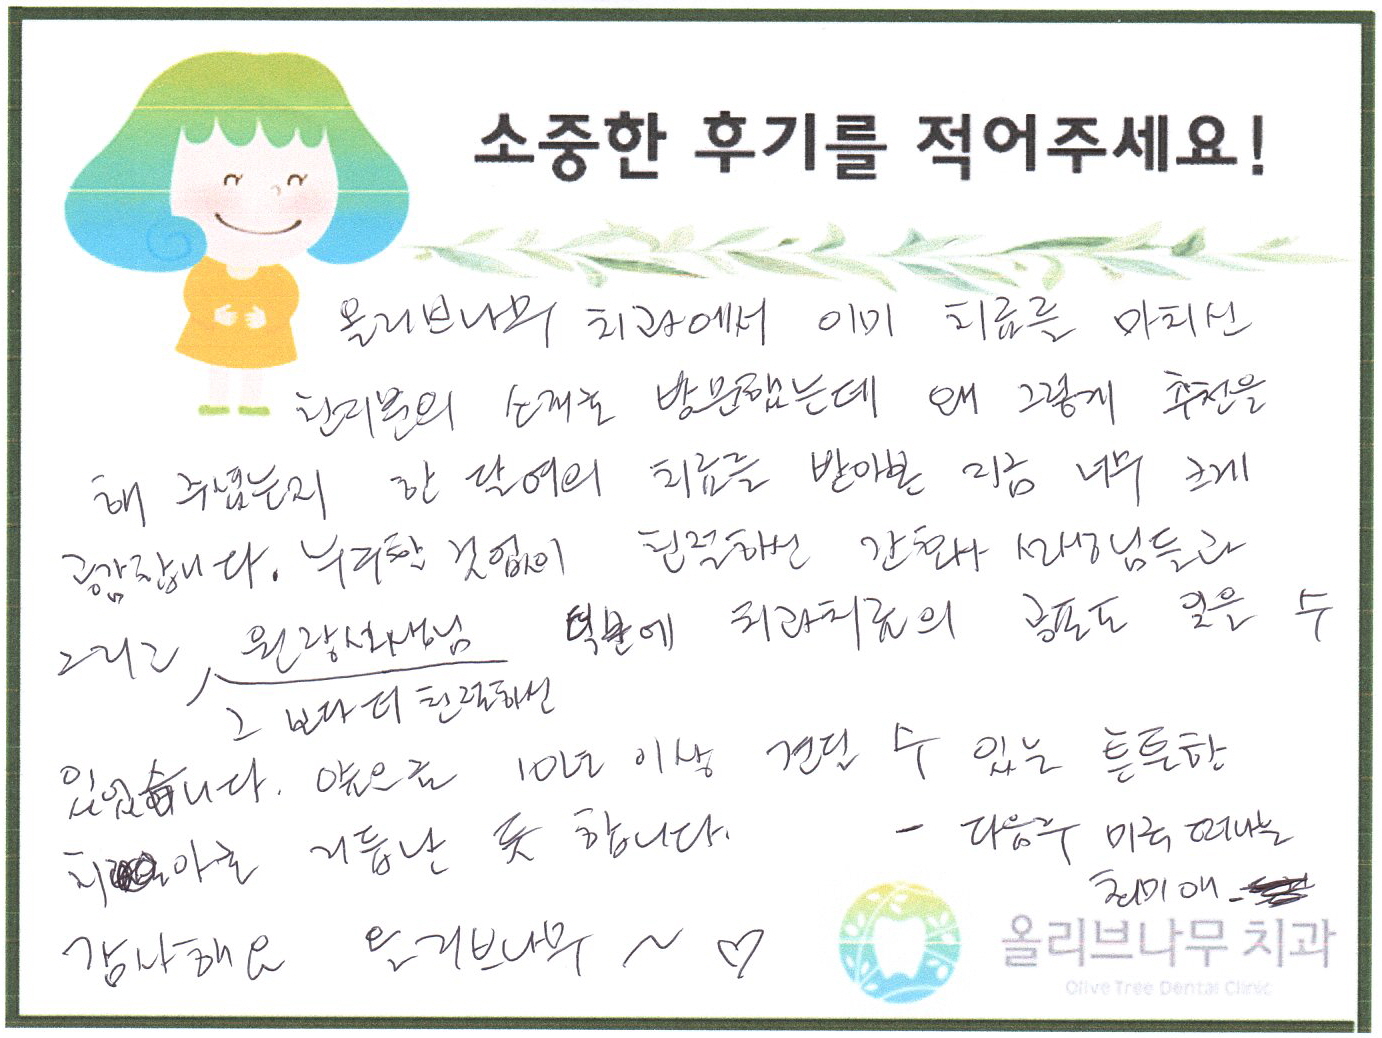 소중한 후기를 적어주세요!
올리브나무 치과에서 이미 치료를 마치신
친지분의 소개로 방문했는데 왜 그렇게 추천을
해 주셨는지 한 달여의 치료를 받아본 지금 너무 크게
공감합니다. 누구할 것없이 친절하신 간호사 선생님들과
그리고 원장선생님 덕분에 치과치료의 공포도 잊을 수
그 보다 더 친절하신
있었습니다. 앞으로 10년 이상 견딜 수 있는 튼튼한
치아로 거듭난 듯 합니다. - 다음주 미국 떠나는
최미애
감사해요 올리브나무~♡
올리브나무 치과
Olive Tree Dental Clinic